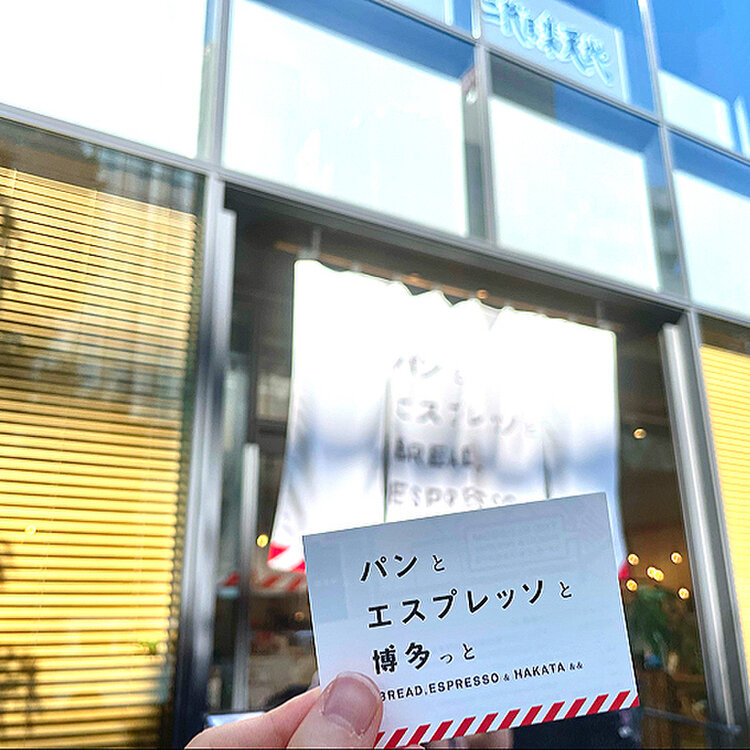 パンと
エスプレッソと
BREAD,
ESPRESSO
パンと
エスプレッソと
博多っと
BREAD,ESPRESSO & HAKATA &&